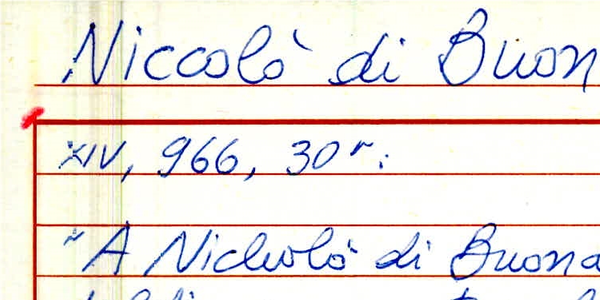 Niccolò di Buon
XIV, 966, 30r:
"A Nicholò di Buona